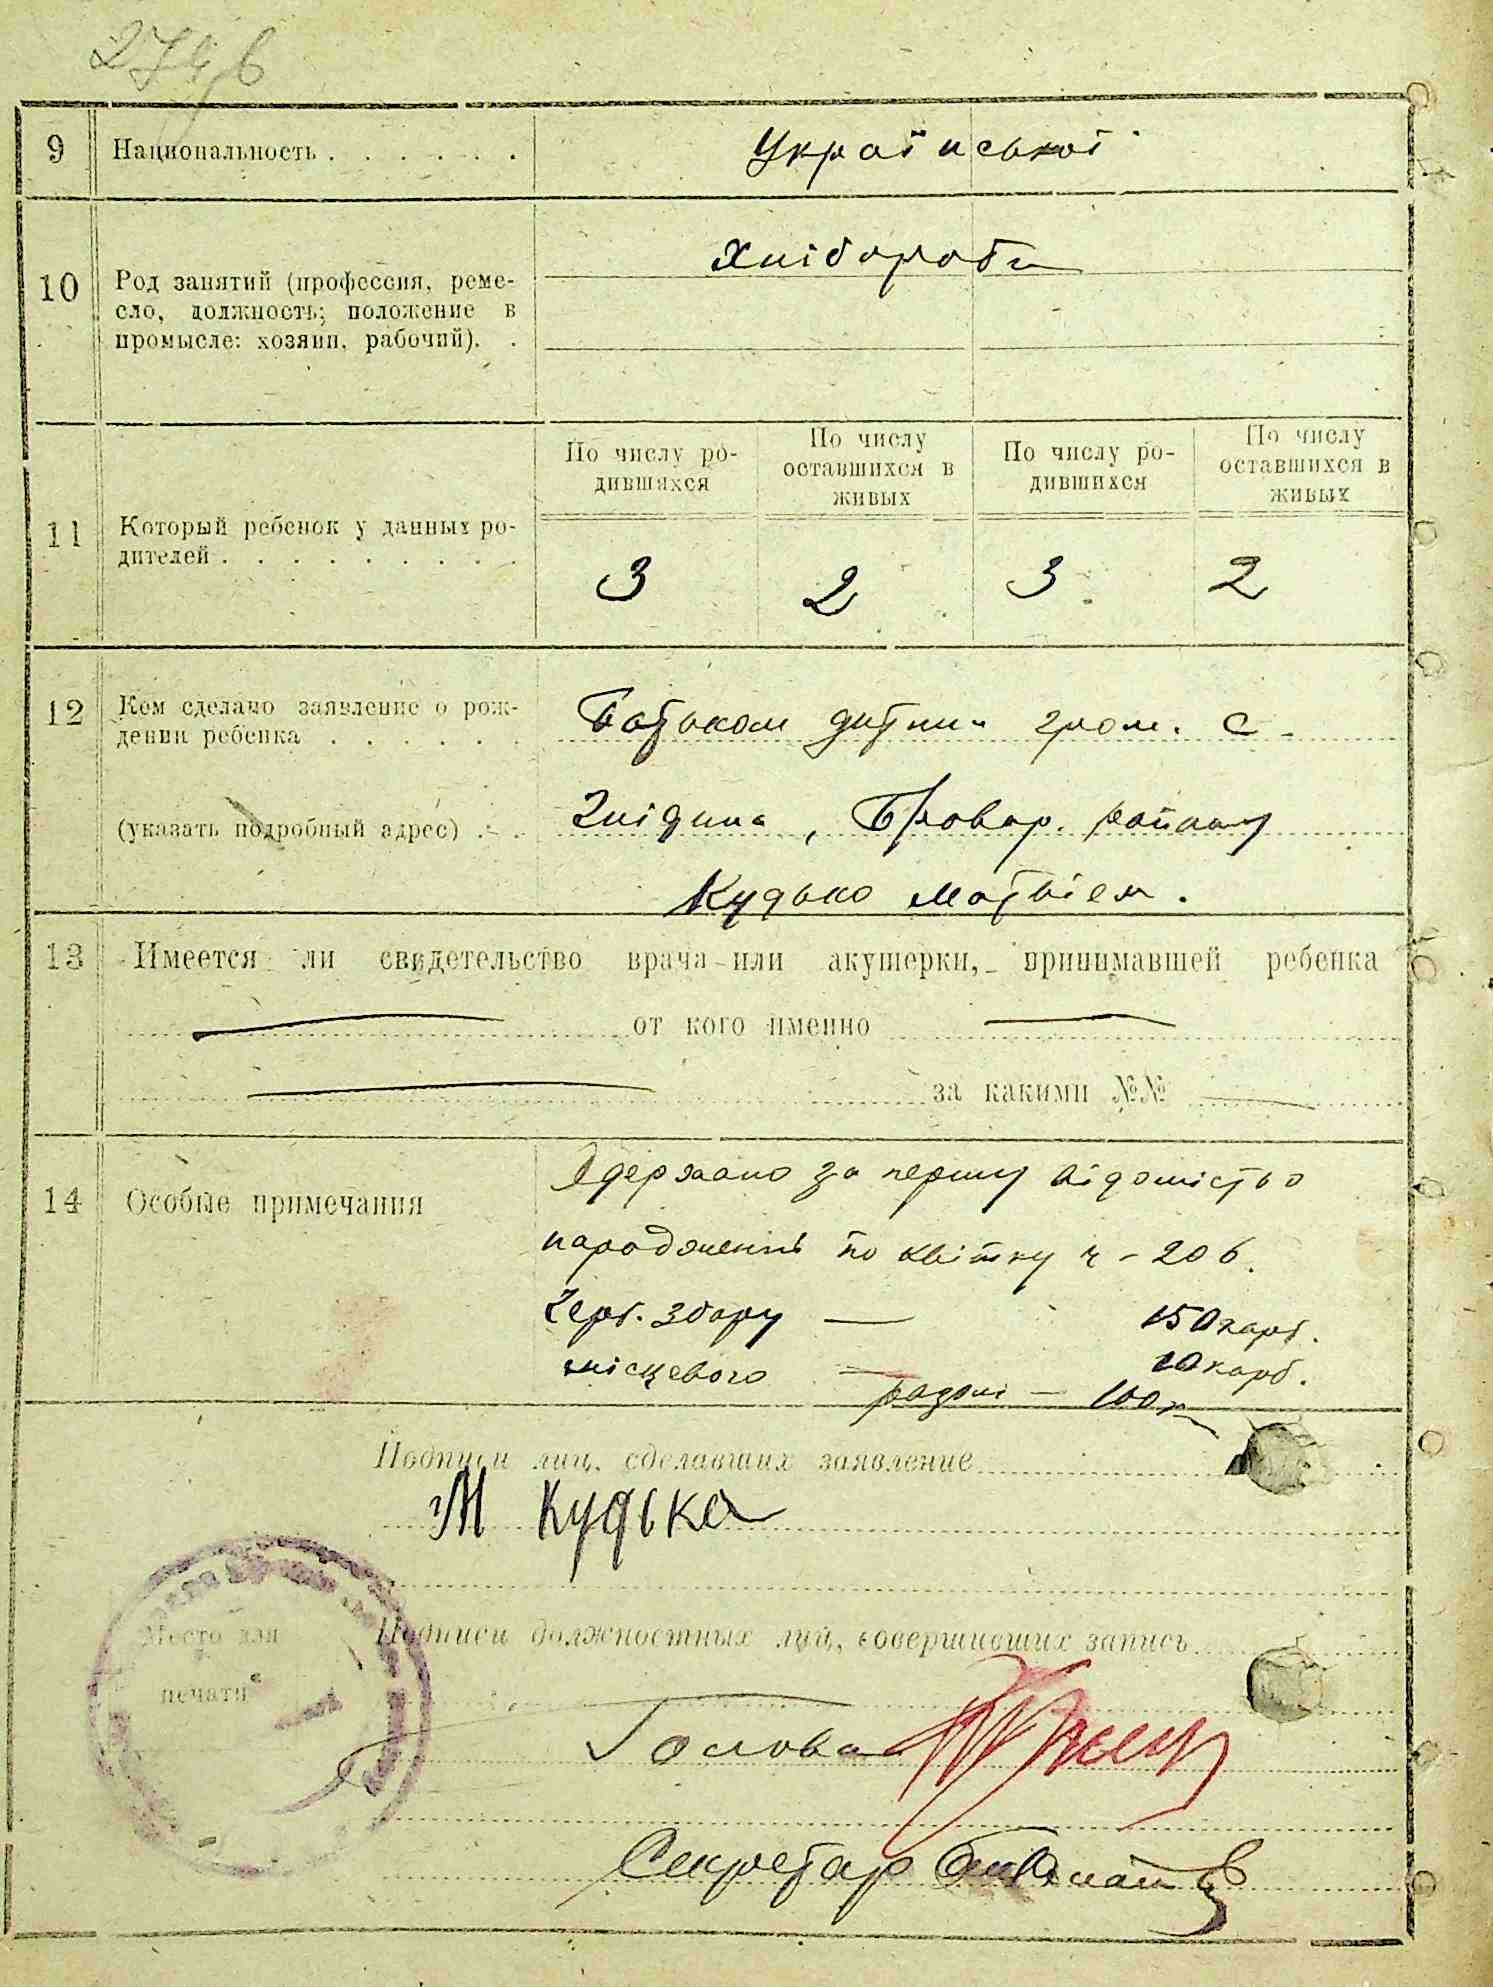 274 б
9 Национальность . . . . . . Української
10 Род занятий (профессия, реме-
сло, должность; положение в
промысле: хозяин, рабочий). .
Хлібороби
По числу ро-
дившихся
По числу
оставшихся в
живых
По числу ро-
дившихся
По числу
оставшихся в
живых
11 Который ребенок у данных ро-
дителей . . . . . . . . .
3 2 3 2
12 Кем сделано заявление о рож-
дении ребенка . . . . . .
(указать подробный адрес) . .
Батьком дитини гром. с.
Гнідина, Бровар. району
Кудько Матвієм.
13 Имеется ли свидетельство врача или акушерки, принимавшей ребенка
от кого именно
за какими №№
14 Особые примечания
Одержано за першу відомість о
народженні по квітку ч - 206.
Герб. збору — 150 карб.
місцевого — 10 карб.
разом —
Подписи лиц, сделавших заявление
М Кудька
Место для
печати
Подписи должностных лиц, совершивших запись
Голова
Секретар